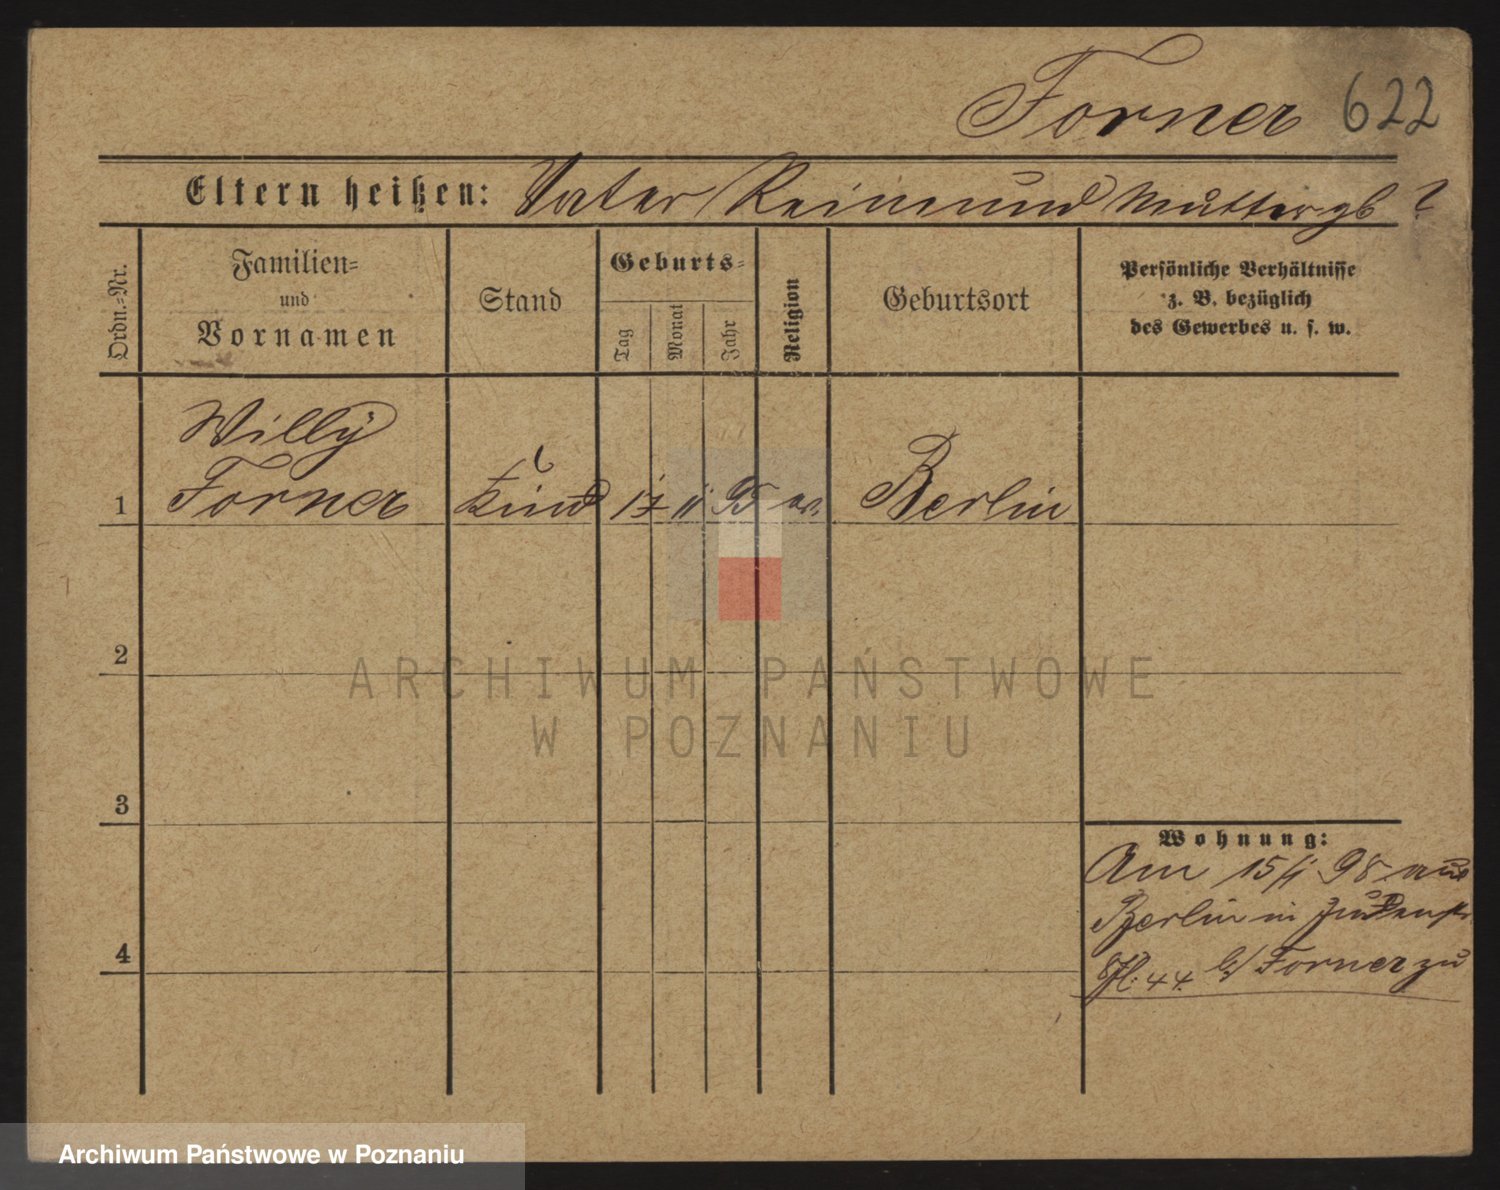 Forner 622
Eltern heißen: Vater Reimund Mutter gb ?
Ordn.-Nr.
Familien-
und
Vornamen
Stand
Geburts-
Tag
Monat
Jahr
Religion
Geburtsort
Persönliche Verhältnisse
z. B. bezüglich
des Gewerbes u. s. w.
Willy
1 Forner Kind 17 11 95 ev. Berlin
2
3
4
Wohnung:
Am 15/1 98 aus
Berlin in Judenstr.
44 b/ Forner zu
ARCHIWUM PAŃSTWOWE
W POZNANIU
Archiwum Państwowe w Poznaniu